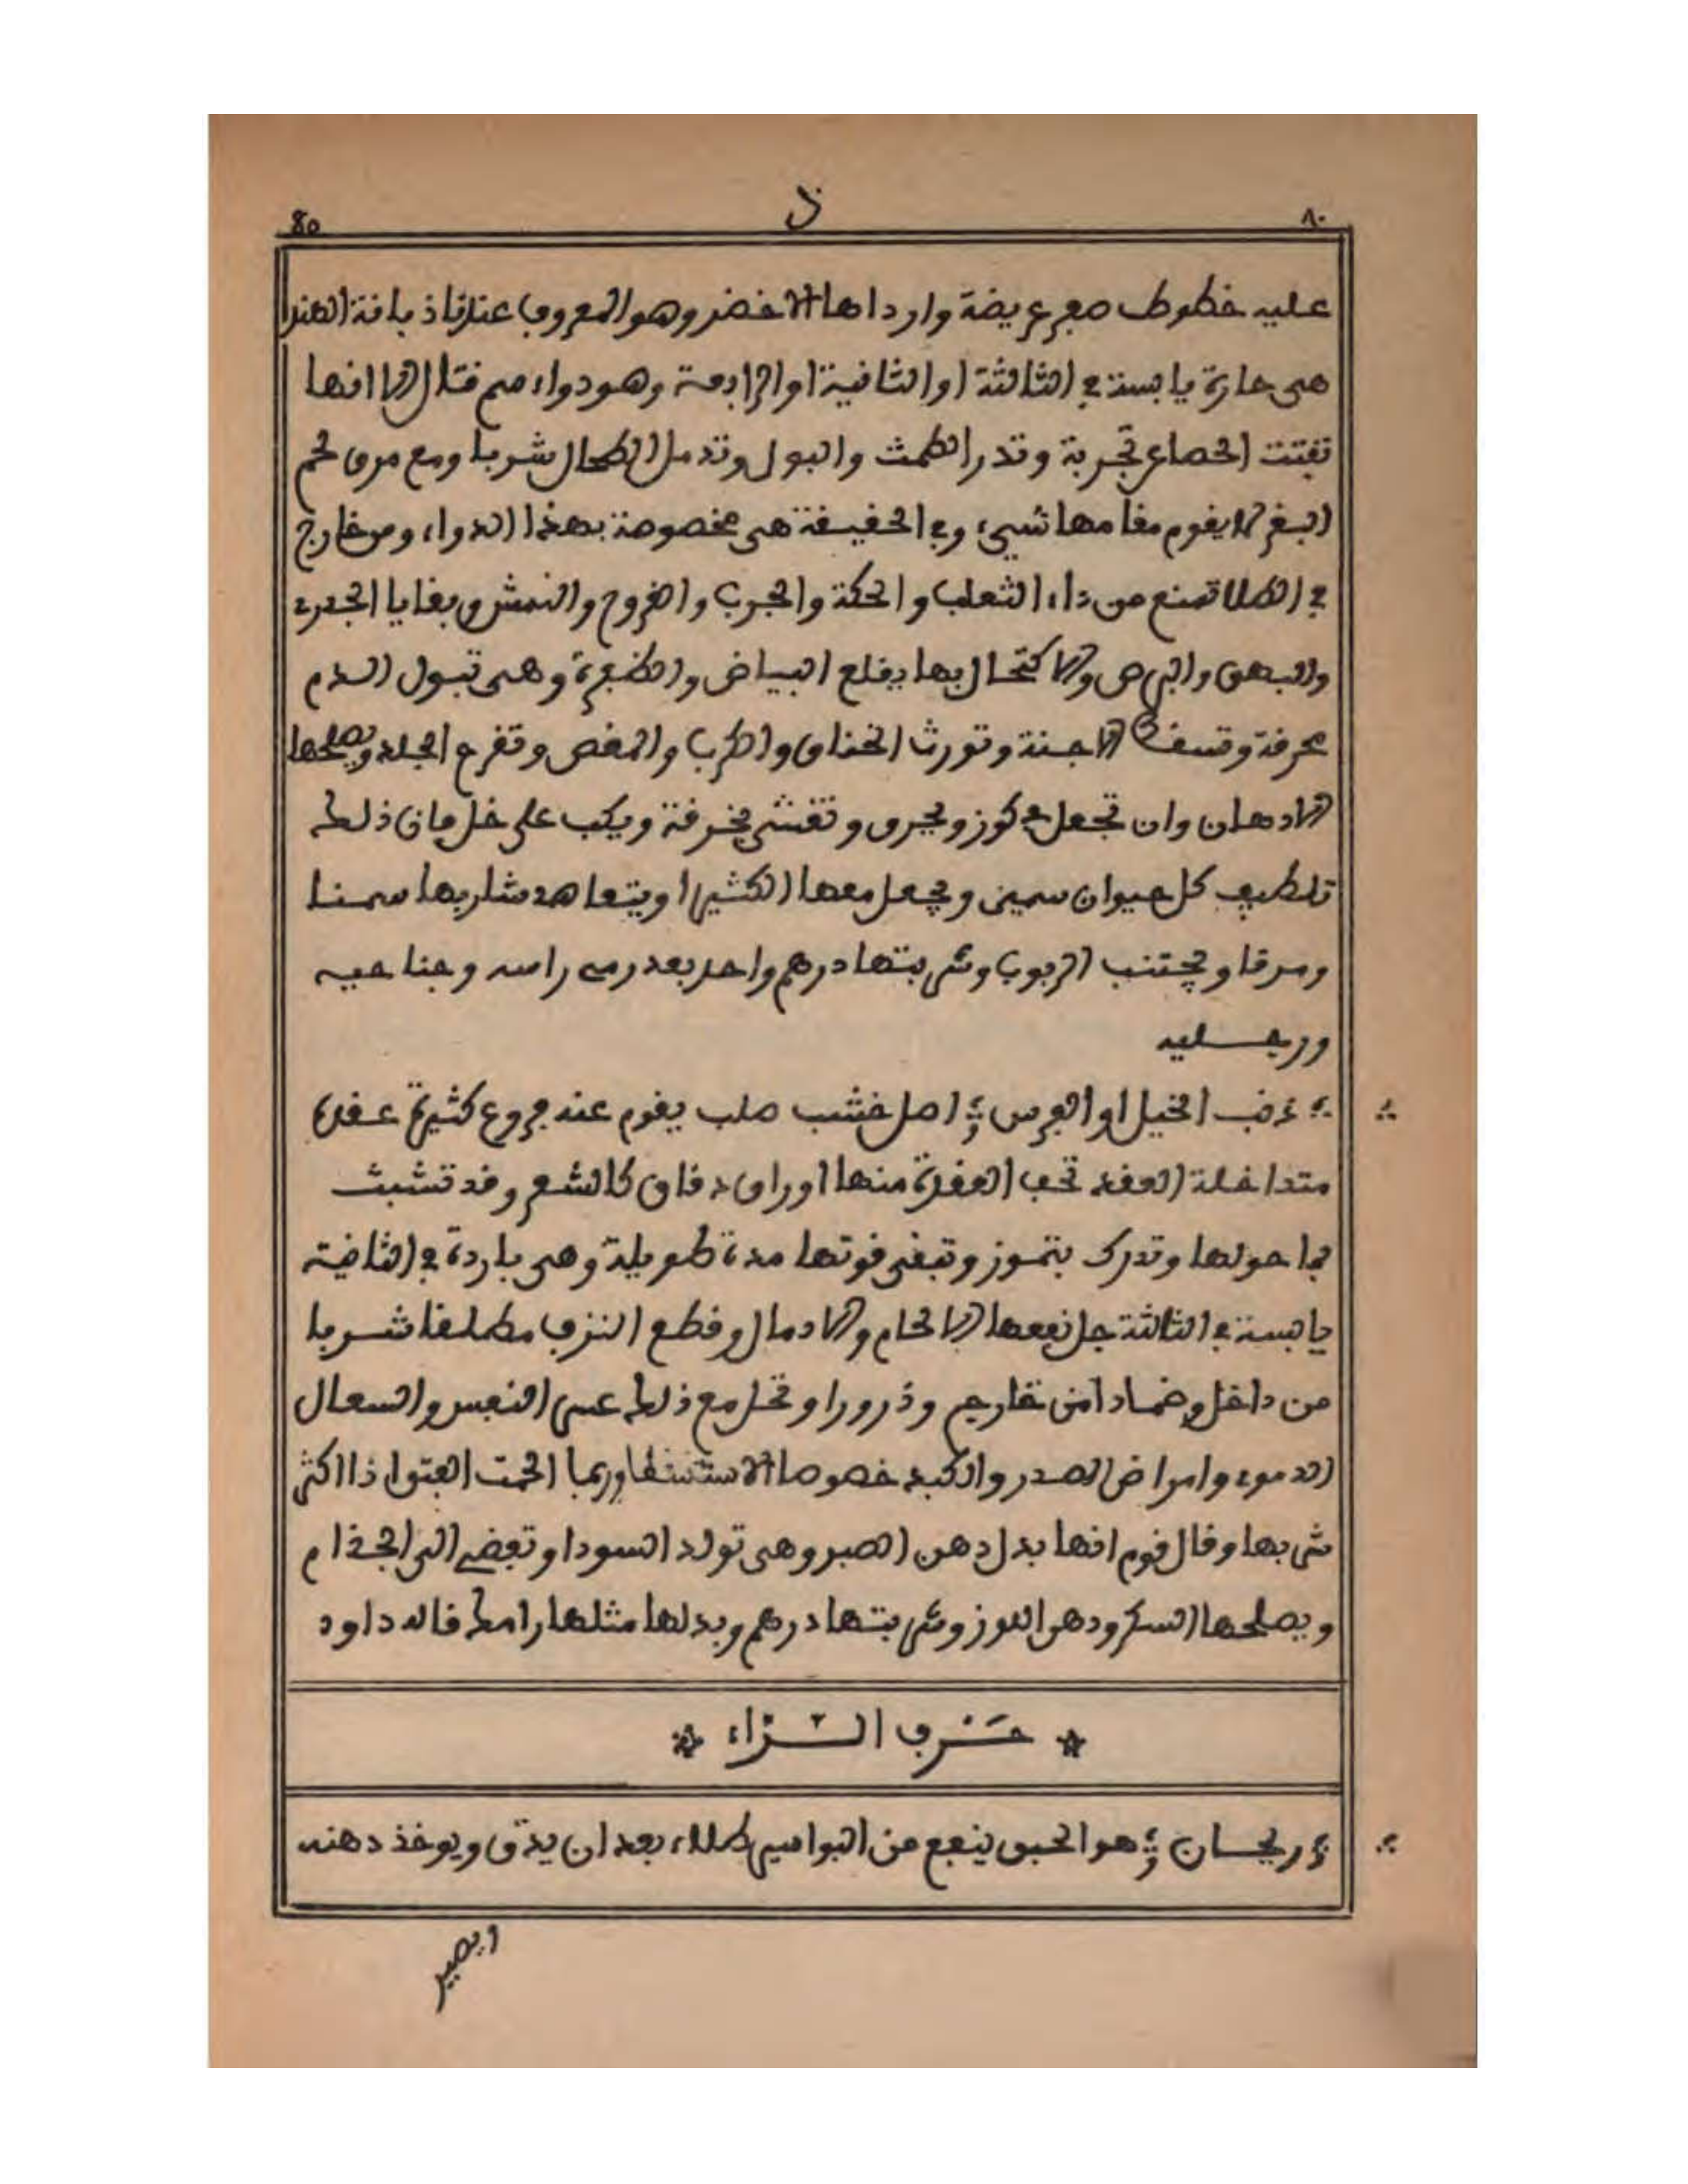 ٨٠ ذ 80
عليه خطوط صفر عريضة وارداها الاخضر وهو المعروف عندنا ذبانة الهند
هي حارة يابسة في الثالثة او الثانية او الرابعة وهو دواء سم قتال الا انها
تفتت الحصاع تجربة وتدر الطمث والبول وتدمل الطحال شربا ومع مرق لحم
البقر لا يقوم مقامها شيء وفي الحقيقة هي مخصوصة بهذا الدواء ومن خارج
في الطلا تمنع من داء الثعلب والحكة والجرب والقروح والنمش وبقايا الجدرى
والبهق والبرص والاكتحال بها يقلع البياض والظفرة وهي تبول الدم
بحرقة وتسقط الاجنة وتورث الخناق والكرب والمغص وتقرح الجلد ويصلحها
الادهان وان تجعل في كوز ويحرق وتغشى بخرقة ويكب على خل فان ذلك
تلطيف كل حيوان سمين ويجعل معها الكثيرا ويتعاهد شاربها سمنا
ومرقا ويجتنب الربوب وشربتها درهم واحد بعد رمى راسه وجناحيه
ورجليه
ذنب الخيل او الفرس اصل خشب صلب يقوم عنه فروع كثيرة عقدة
متداخلة العقد تحب العقدة منها اوراق دقاق كالشعر وقد تشبث
بما حولها وتدرك بتموز وتبقى قوتها مدة طويلة وهي باردة في الثانية
يابسة في الثالثة جل نفعها الالحام والادمال وقطع النزف مطلقا شربا
من داخل وضمادا من خارج وذرورا وتحل مع ذلك عسر النفس والسعال
الدموى وامراض الصدر والكبد خصوصا الاستسقا وربما الحمت الفتق اذا اكثر
شربها وقال قوم انها بدل دهن الصبر وهي تولد السودا وتفضى الى الجذام
ويصلحها السكر ودهن اللوز وشربتها درهم وبدلها مثلها رامك قاله داود
حرف الراء
ريحان هو الحبق ينفع من البواسير طلاء بعد ان يدق ويوخذ دهنه
ويصير